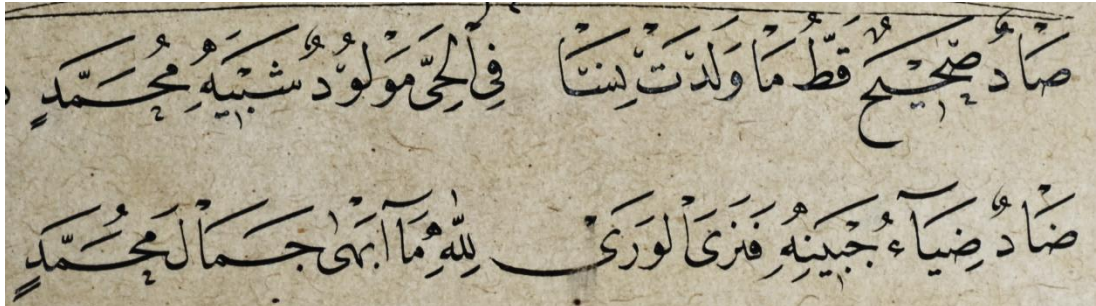 صَادٌ صَحِيْحٌ قَطُّ مَا وَلَدَتْ نِسَا فِي الْحَيِّ مَوْلُوْدٌ شَبِيْهُ مُحَمَّدٍ
ضَادٌ ضِيَآءُ جَبِيْنِهِ فَتَرَى الْوَرَىٰ لِلّٰهِ مَا اَبْهٰى جَمَالَ مُحَمَّدٍ